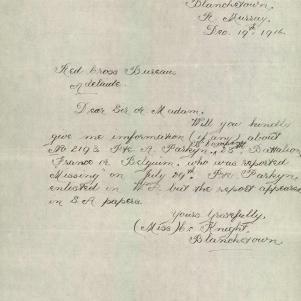 Blanchetown,
R. Murray.
Dec. 19th. 1916
Red Cross Bureau
Adelaide.
Dear Sir or Madam.
Will you kindly
give me information (if any) about
No 2193 Pte A. Parkyn, 28th Battalion,
France or Belguim. who was reported
"Missing" on July 29th. Pte Parkyn
enlisted in W.A. but the report appeared
in S.A papers.
Yours Gratefully.
(Miss) H. Knight.
Blanchetown